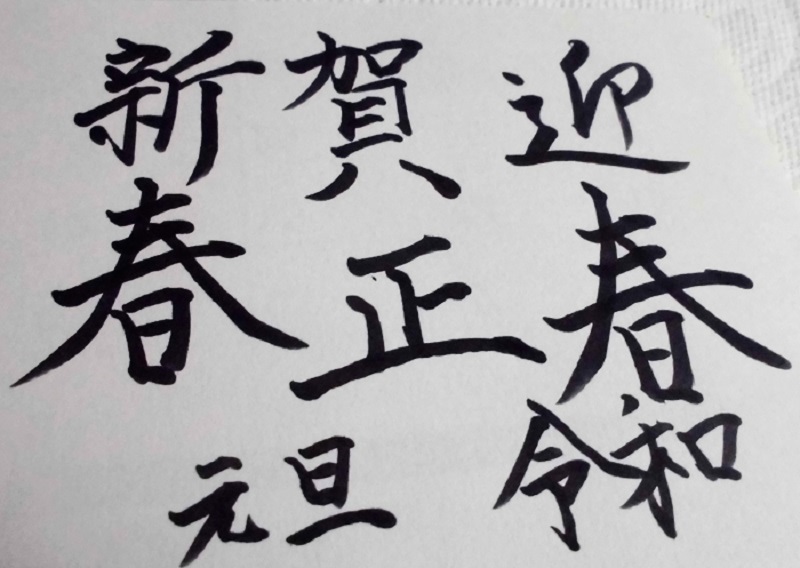 迎春
賀正
新春
令和
元旦